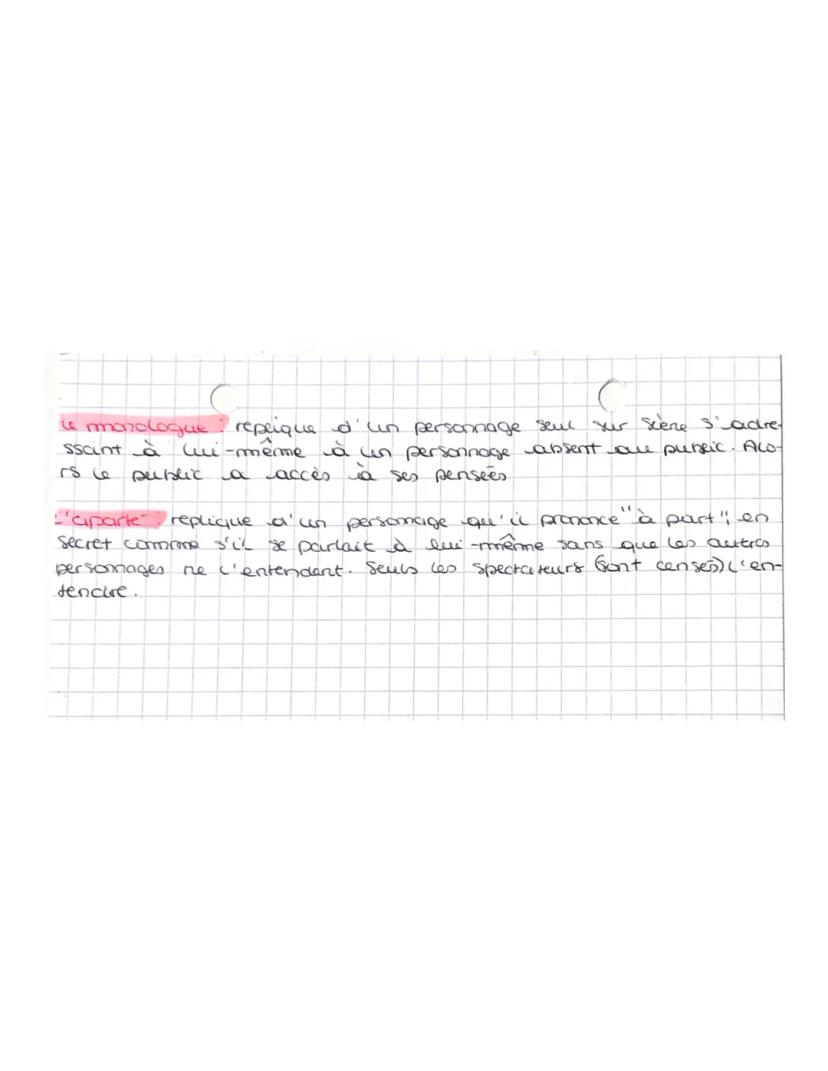 Le monologue : replique d'un personnage seul sur scène s'adre-
ssant à lui-même à un personnage absent au public. Alo-
rs le public a accès à ses pensées
L'aparté replique d'un personnage qu'il prononce "à part", en
secret comme s'il se parlait à lui-même sans que les autres
personnages ne l'entendent. Seuls les spectateurs (sont censés) l'en-
tendre.